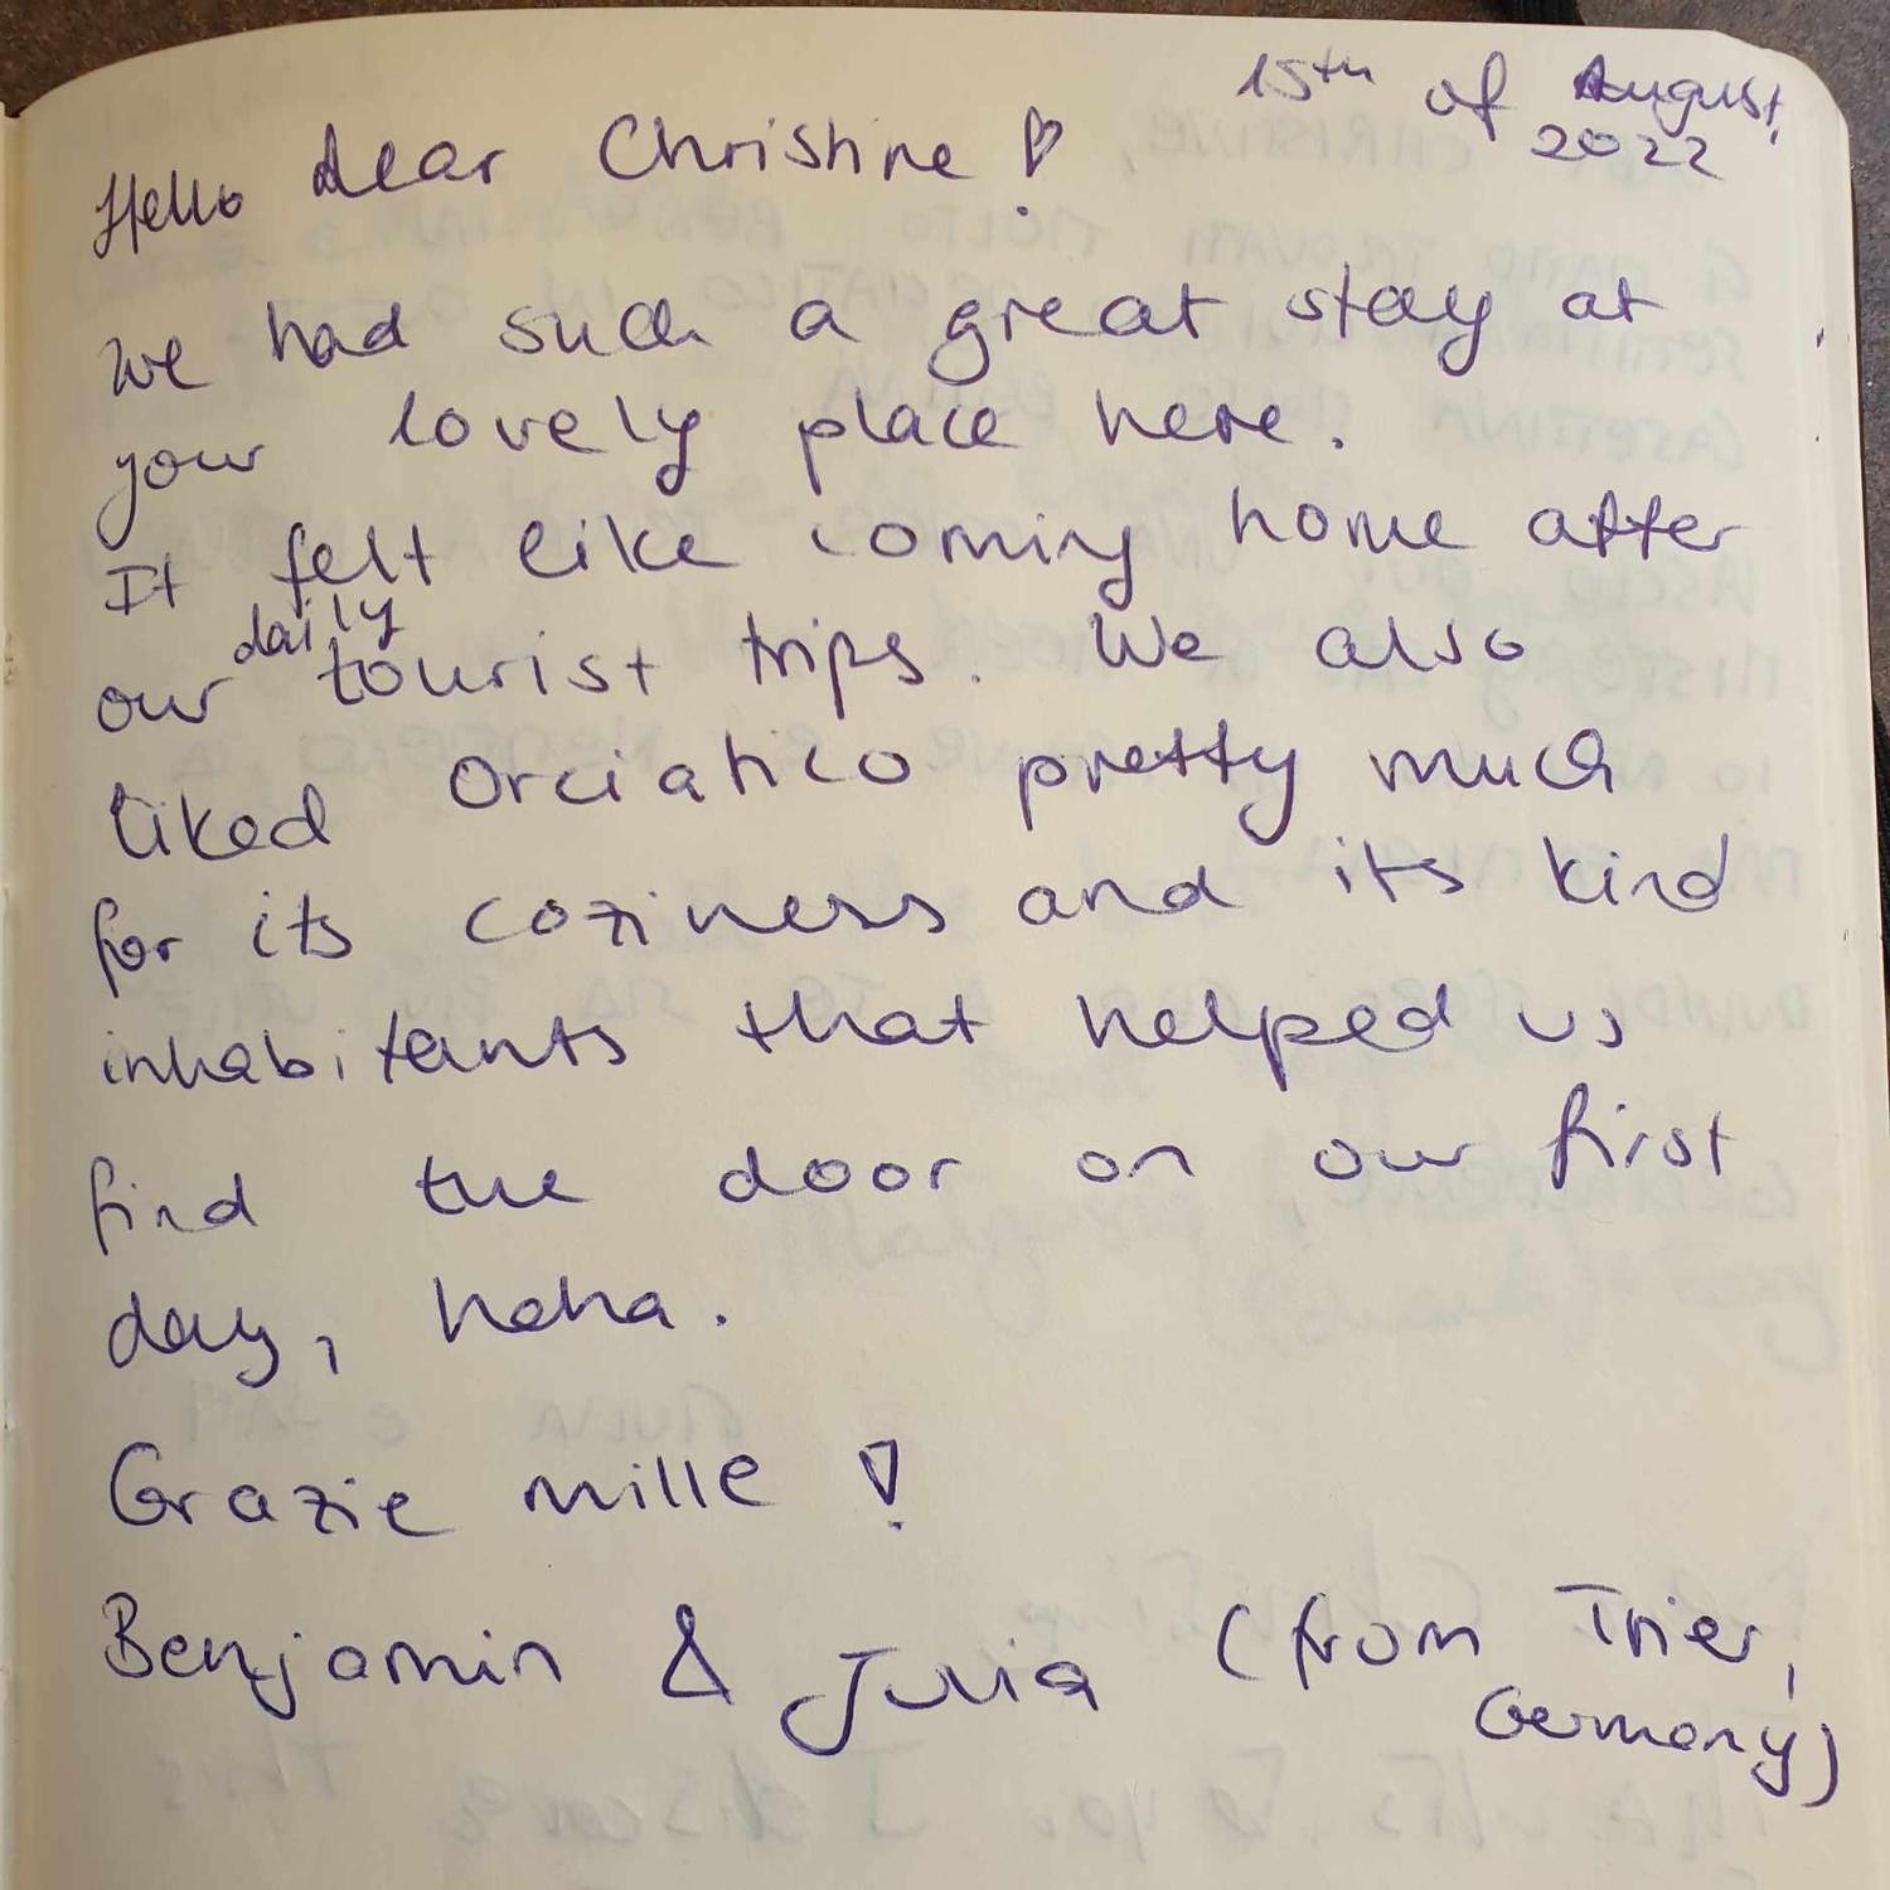 15th of August,
2022
Hello dear Christine!
we had such a great stay at
your lovely place here.
It felt like coming home after
our daily tourist trips. We also
liked Orciatico pretty much
for its coziness and its kind
inhabitants that helped us
find the door on our first
day, haha.
Grazie mille!
Benjamin & Julia (from Trier,
Germany)